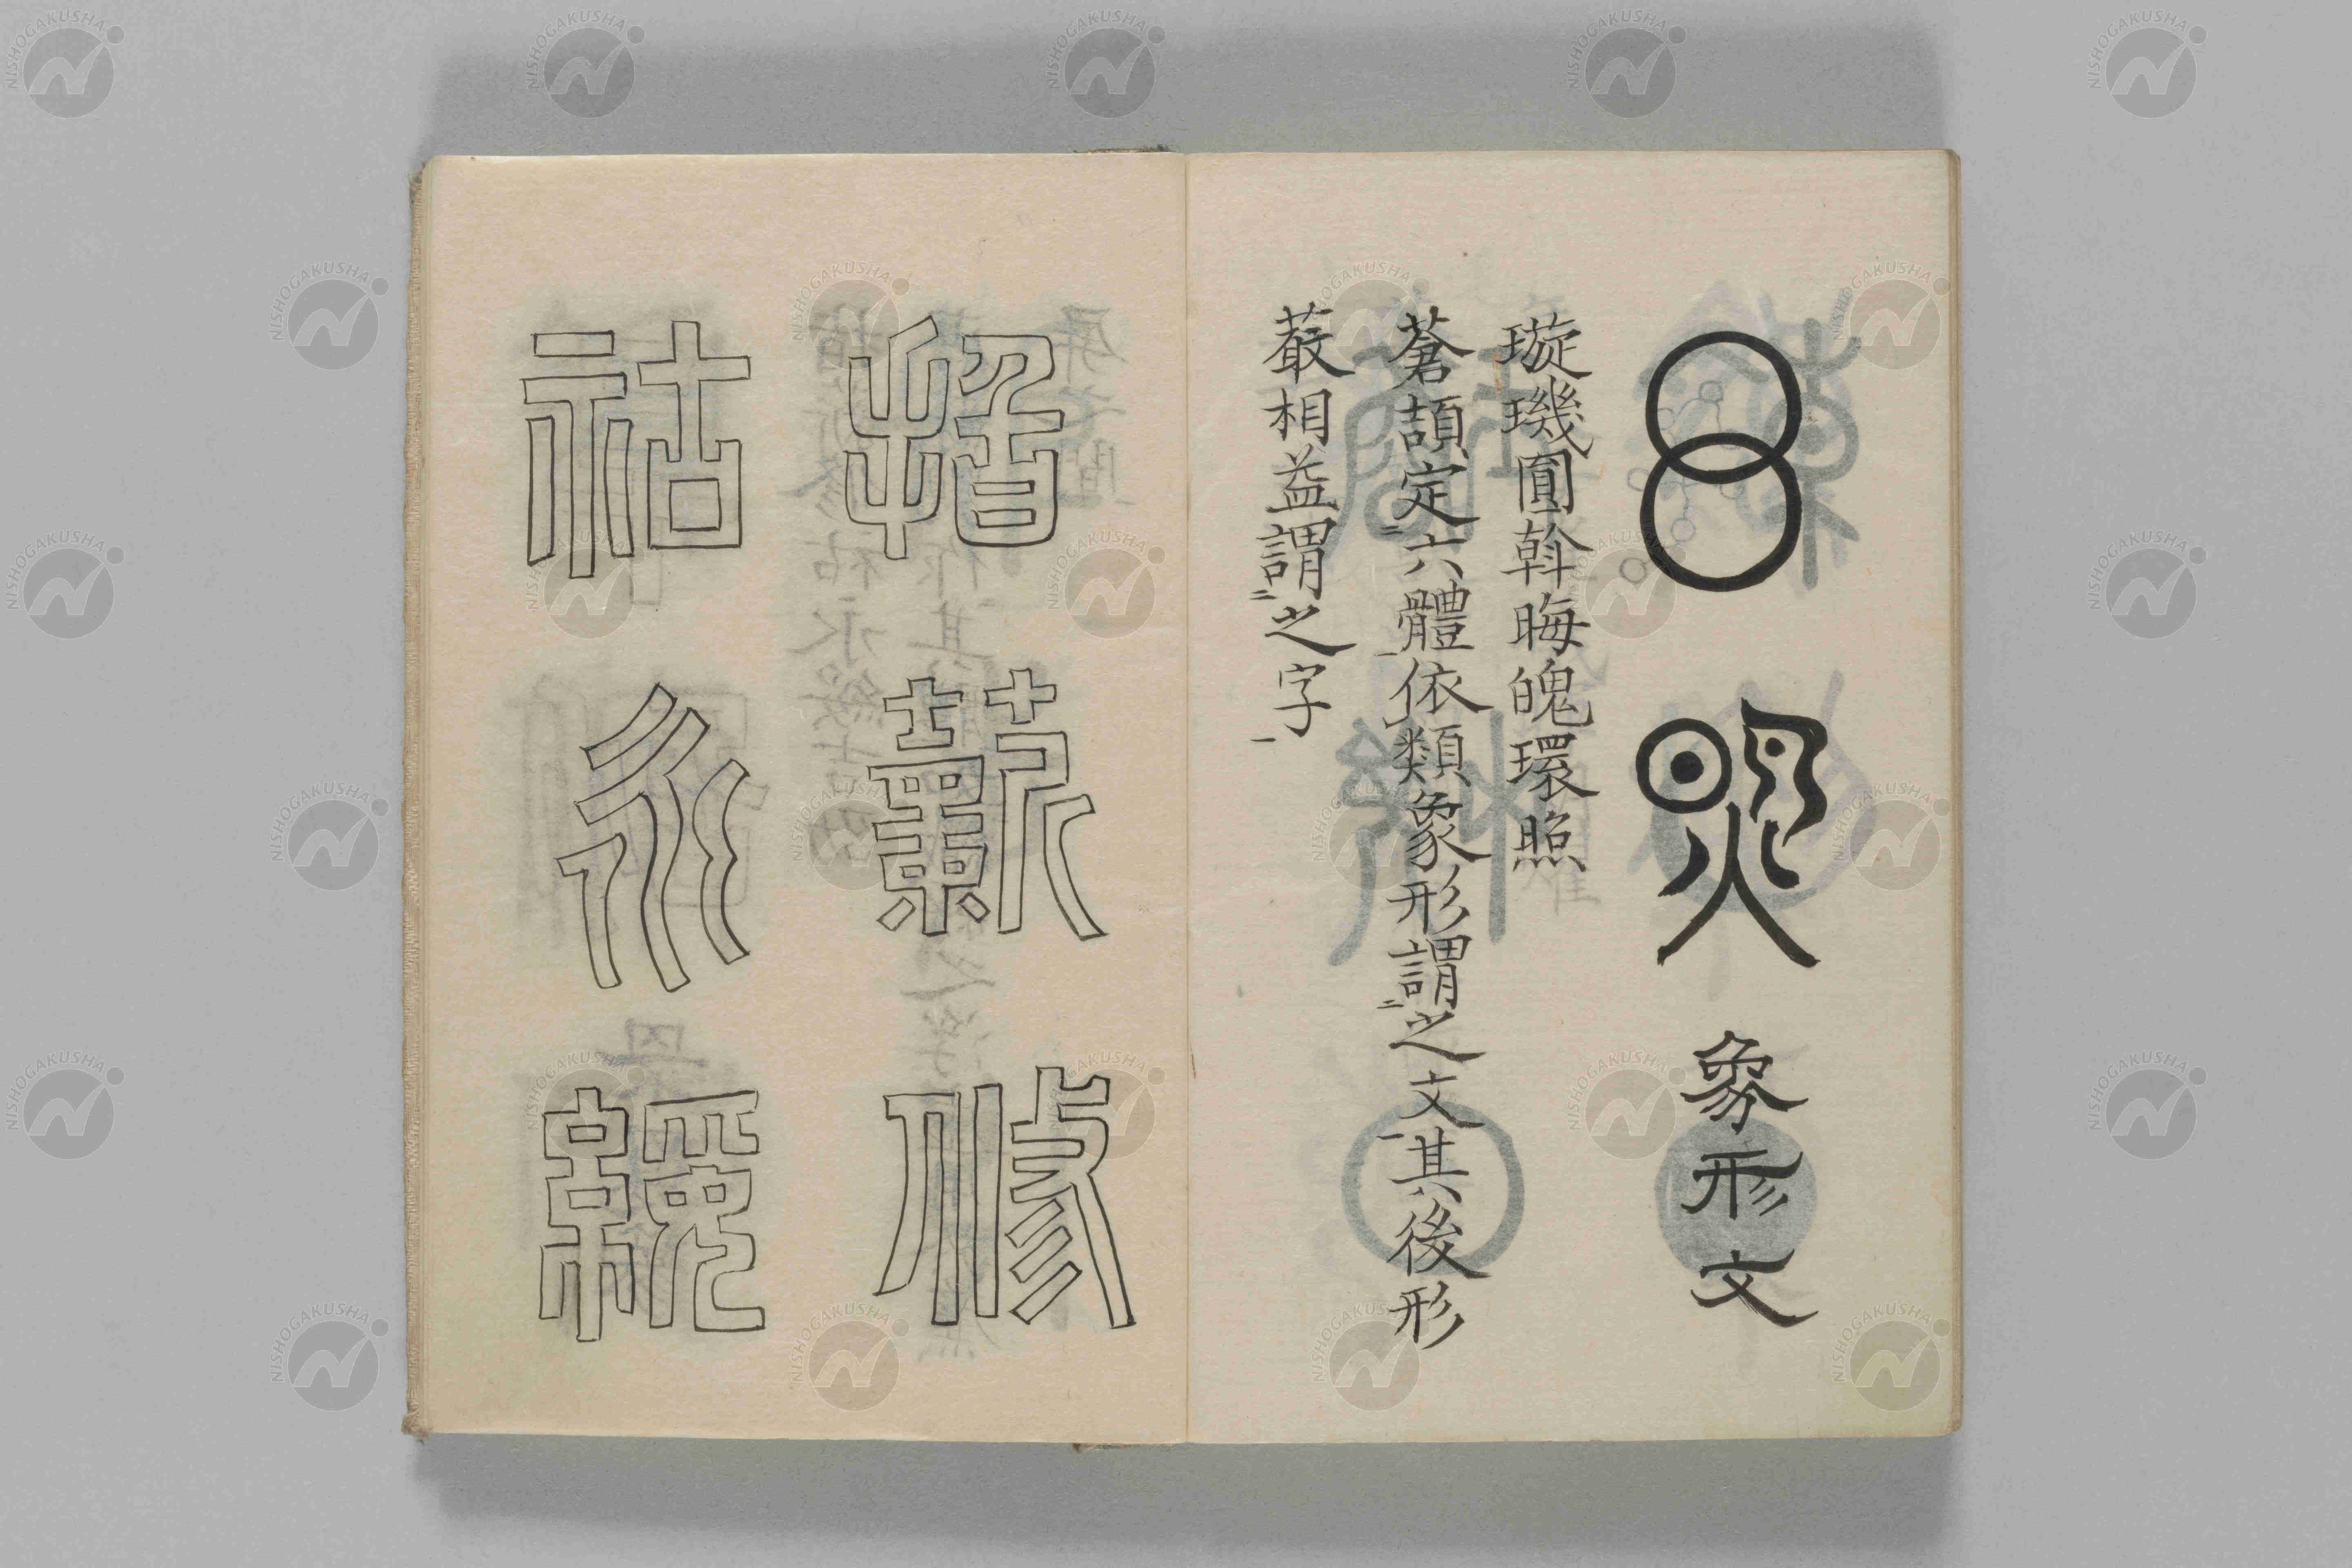 環照象形文
璇璣圓斡晦魄環照
蒼頡定六體依類象形謂之文其後形
相益謂之字
指薪修
祜永綏
NISHOGAKUSHA